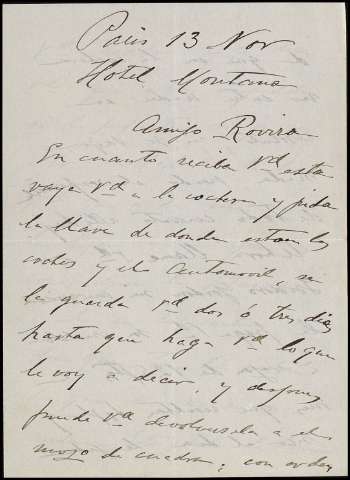 Paris 13 Nov
Hotel Montana
Amigo Rovira
En cuanto reciba Vd esta
vaya Vd a la cochera y pida
la llave de donde estan los
coches y el automovil se
la guarda Vd dos ó tres dias
hasta que haga Vd lo que
le voy a decir, y despues
puede Vd devolversela a el
mozo de cuadra, con orden